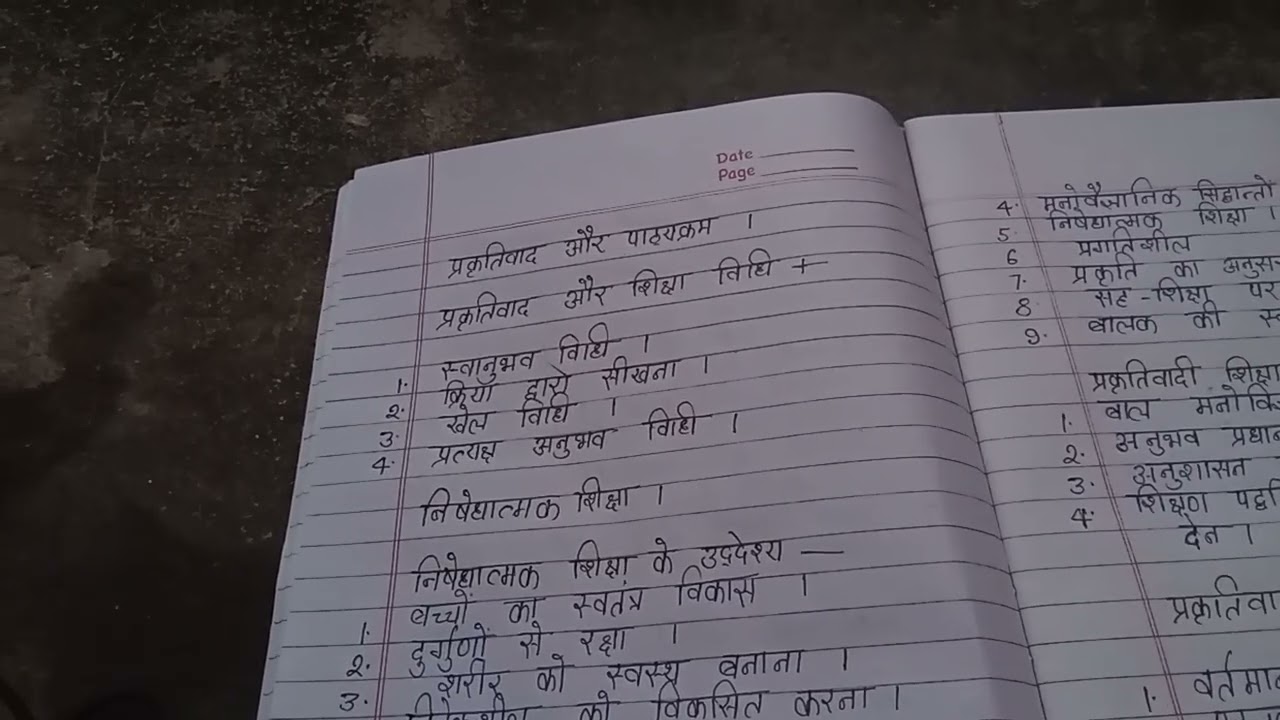 Date
Page
प्रकृतिवाद और पाठ्यक्रम ।
प्रकृतिवाद और शिक्षा विधि +
1. स्वानुभव विधि ।
2. क्रिया द्वारा सीखना ।
3. खेल विधि ।
4. प्रत्यक्ष अनुभव विधी ।
निषेधात्मक शिक्षा ।
निषेधात्मक शिक्षा के उद्देश्य —
1. बच्चों का स्वतंत्र विकास ।
2. दुर्गुणों से रक्षा ।
3. शरीर को स्वस्थ बनाना ।
को विकसित करना ।
4. मनोवैज्ञानिक सिद्धान्तों
5. निषेधात्मक शिक्षा ।
6 प्रगतिशील
7. प्रकृति का
8. सह-शिक्षा पर
9. बालक की
प्रकृतिवादी शिक्षा
1. बाल
2. अनुभव
3. अनुशासन
4. शिक्षण
देन ।
1.